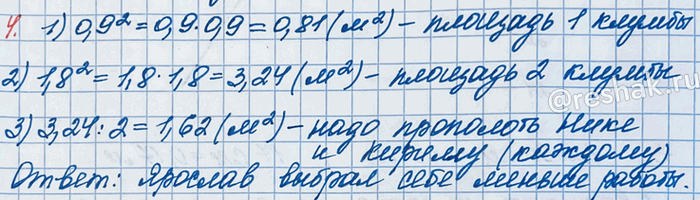 4. 1) 0,9² = 0,9·0,9 = 0,81 (м²) – площадь 1 клумбы
2) 1,8² = 1,8·1,8 = 3,24 (м²) – площадь 2 клумбы
@reshak.ru
3) 3,24:2 = 1,62 (м²) – надо прополоть Нике
и Кириму (каждому)
Ответ: Ярослав выбрал себе меньше работы.